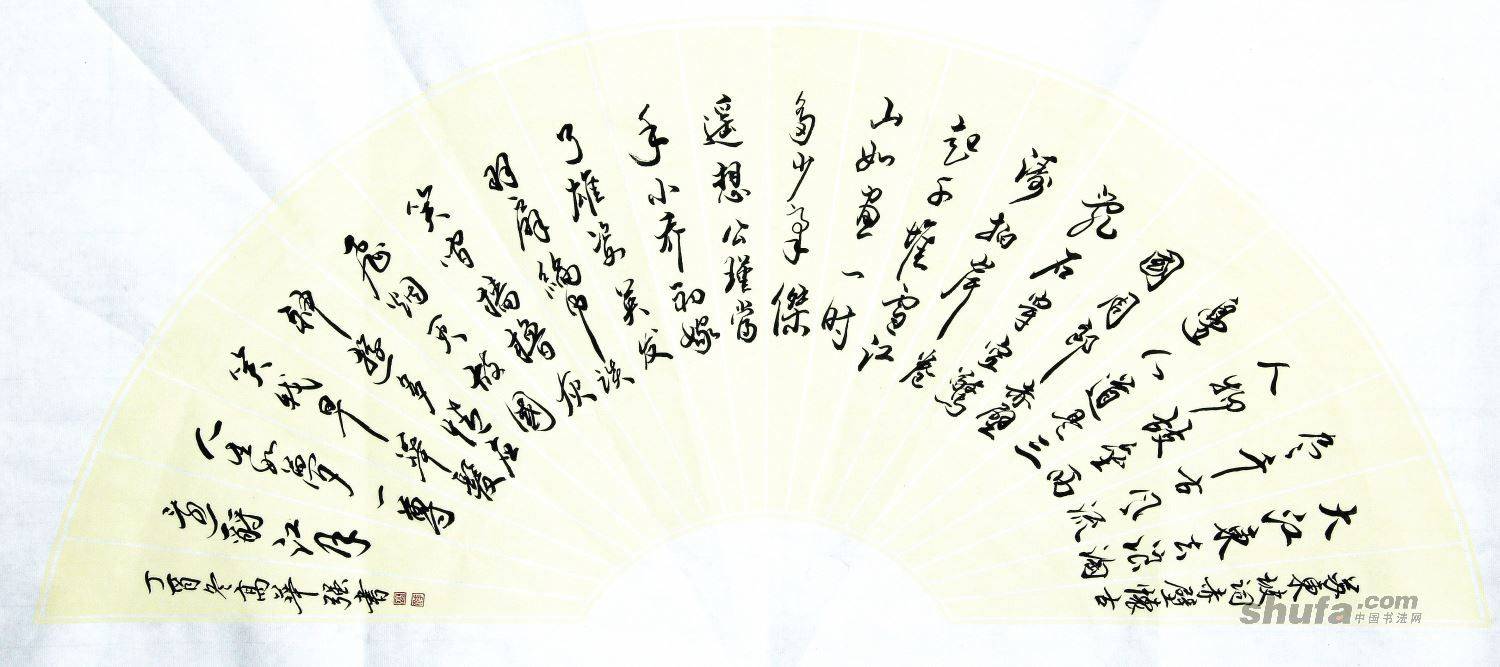 蘇東坡詞赤壁懷古
大江東去浪淘
尽千古风流
人物故垒西
邊人道是三
國周郎赤壁
乱石穿空驚
濤拍岸卷
起千堆雪江
山如畫一时
多少豪傑
遥想公瑾當
年小乔初嫁
了雄姿英发
羽扇綸巾談
笑间樯橹灰
飞烟灭故國
神遊多情应
笑我早華髮
人生如夢一尊
還酹江月
丁酉冬高華強書
shufa.com
中国书法网